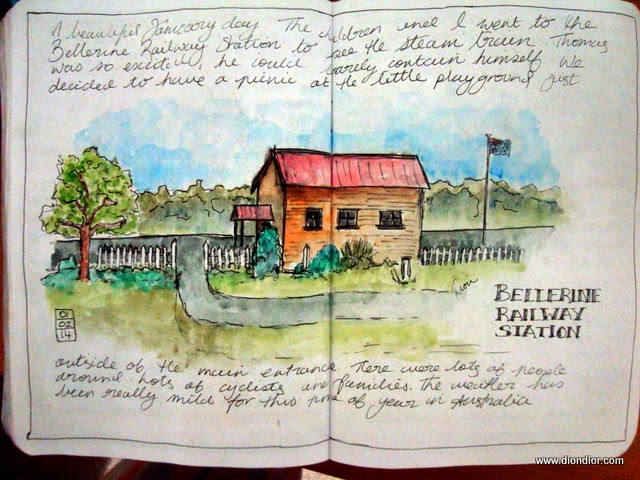 A beautiful Januoary day. The children and I went to the
Bellerine Railway Station to see the steam train. Thomas
was so excited, he could barely contain himself. We
decided to have a picnic at the little playground just
BELLERINE
RAILWAY
STATION
01
02
14
outside of the main entrance. There were lots of people
around lots of cyclists and families. The weather has
been really mild for this time of year in Australia
www.diondior.com